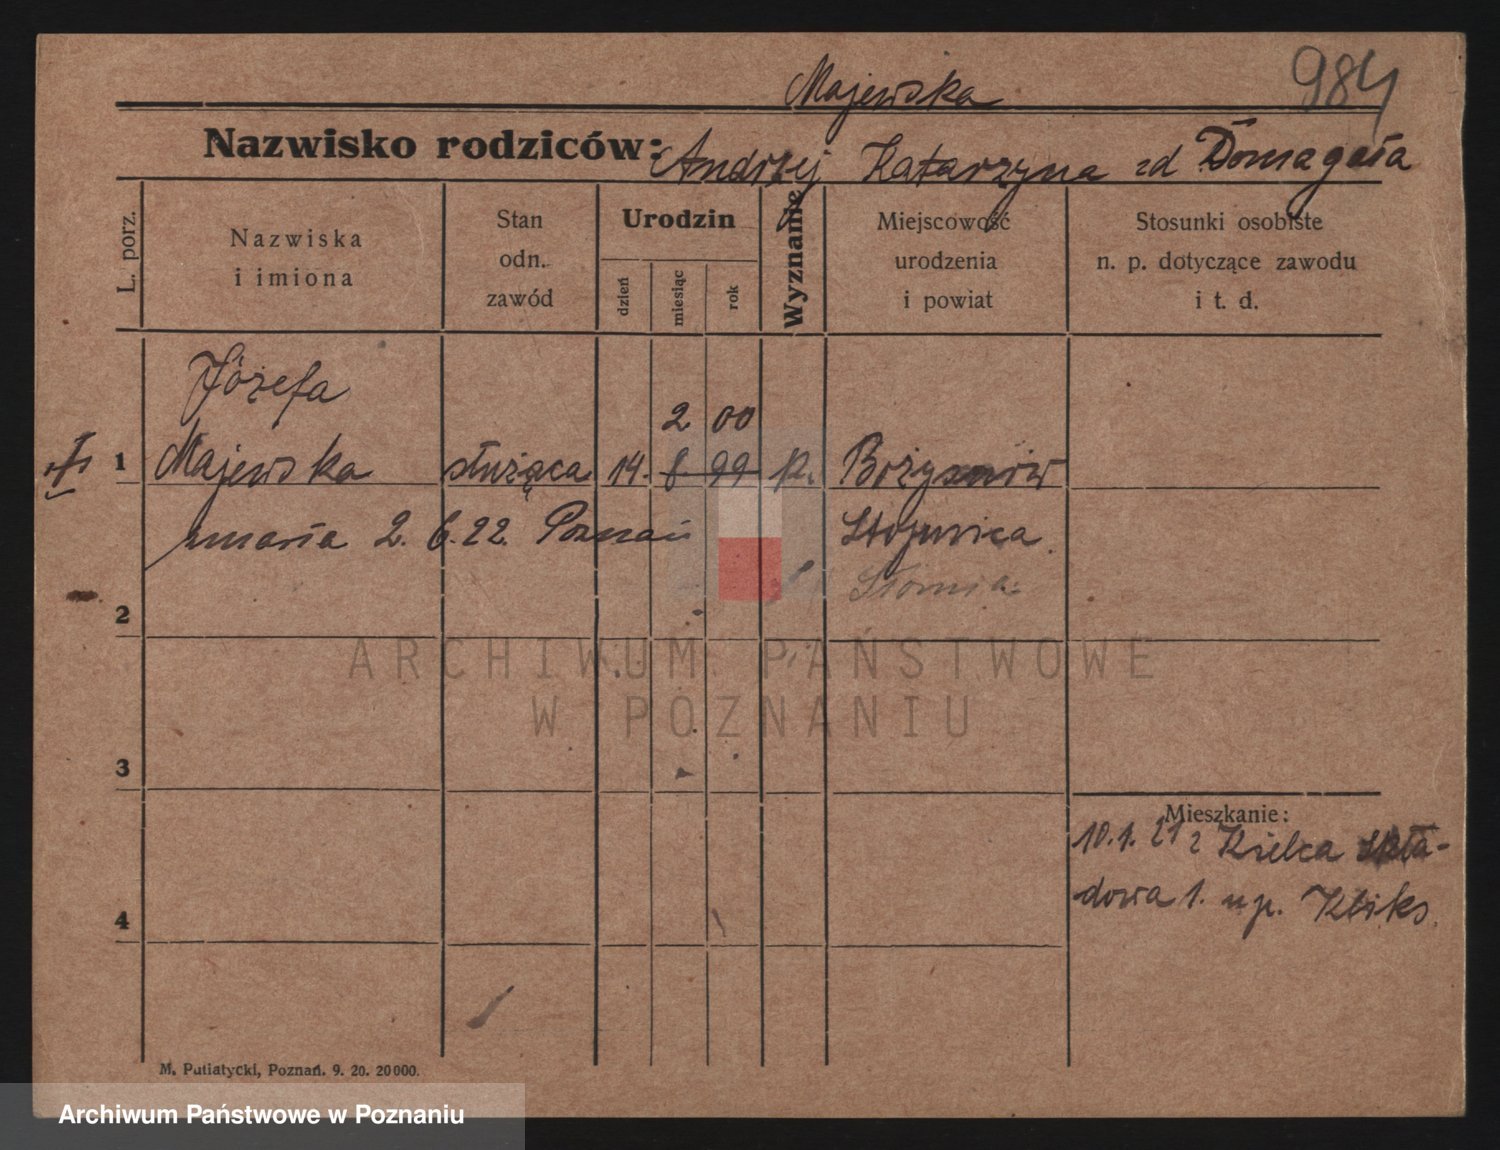 Majewska
984
Nazwisko rodziców: Andrzej Katarzyna zd Domagała
L. porz.
Nazwiska i imiona
Stan odn. zawód
Urodzin
dzień
miesiąc
rok
Wyznanie
Miejscowość urodzenia i powiat
Stosunki osobiste n. p. dotyczące zawodu i t. d.
Józefa
2 00
1 Majewska służąca 14. 8. 99 k.
zmarła 2. 6. 22. Poznań
Stopnica
2
3
4
Mieszkanie:
10.1.21 z Kielca Skła-
dowa 1. up.
M. Putiatycki, Poznań. 9. 20. 20000.
ARCHIWUM PAŃSTWOWE
W POZNANIU
Archiwum Państwowe w Poznaniu